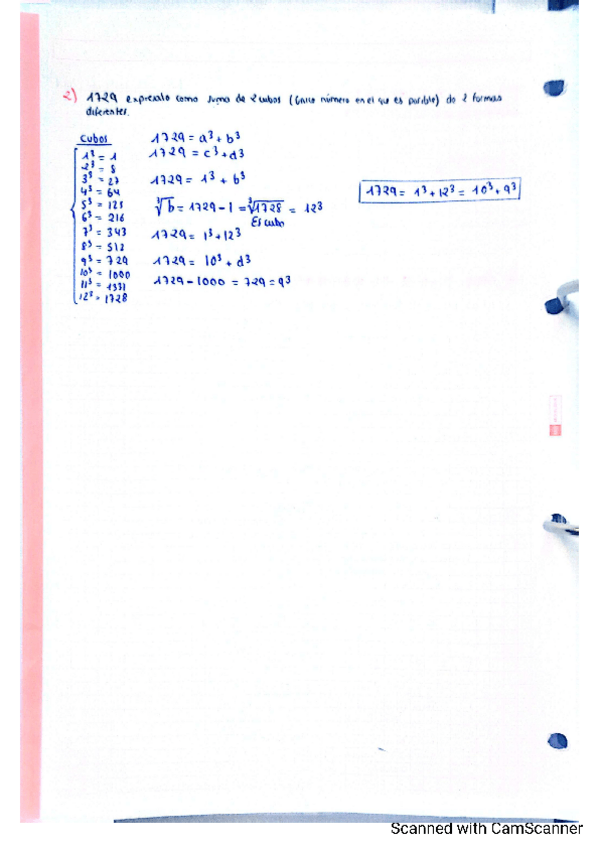 2) 1729 expresalo como suma de 2 cubos (único número en el que es posible) do 2 formas
diferentes.
Cubos
1³ = 1
2³ = 8
3³ = 27
4³ = 64
5³ = 125
6³ = 216
7³ = 343
8³ = 512
9³ = 729
10³ = 1000
11³ = 1331
12³ = 1728
1729 = a³ + b³
1729 = c³ + d3
1729 = 1³ + b³
∛b = 1729 - 1 = ∛1728 = 12³
Es cubo
1729 = 1³ + 12³
1729 = 10³ + d³
1729 - 1000 = 729 = 9³
1729 = 1³ + 12³ = 10³ + 9³
Scanned with CamScanner